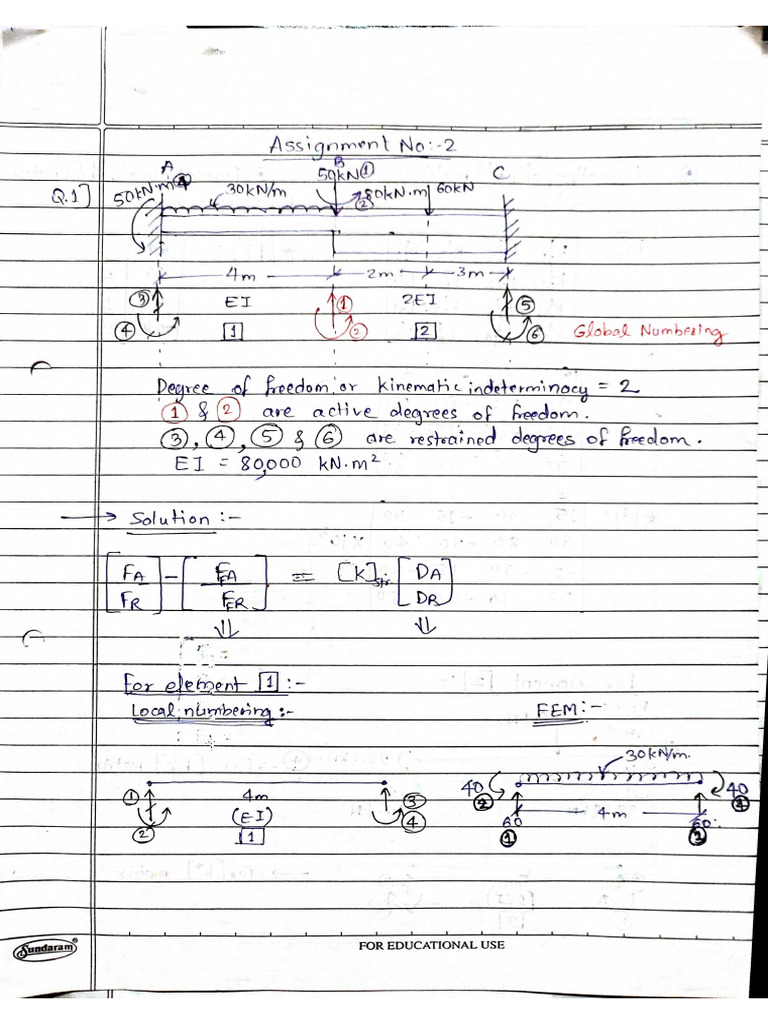 Assignment No:-2
A B C
Q.1] 50kN·m④ 30kN/m 50kN① 80kN·m② 60kN
4m 2m 3m
③ EI ① 2EI ⑤
④ 1 ② 2 ⑥ Global Numbering
Degree of freedom or kinematic indeterminacy = 2
① & ② are active degrees of freedom.
③, ④, ⑤ & ⑥ are restrained degrees of freedom.
EI = 80,000 kN·m²
→ Solution :-
[FA FR] - [FEA FER] = [K]str [DA DR]
For element 1 :-
Local numbering :- FEM:-
30kN/m.
① 4m ③ 40 ② 4m 40 ④
② (EI) ④ 60 60
1 ① ③
Sundaram®
FOR EDUCATIONAL USE